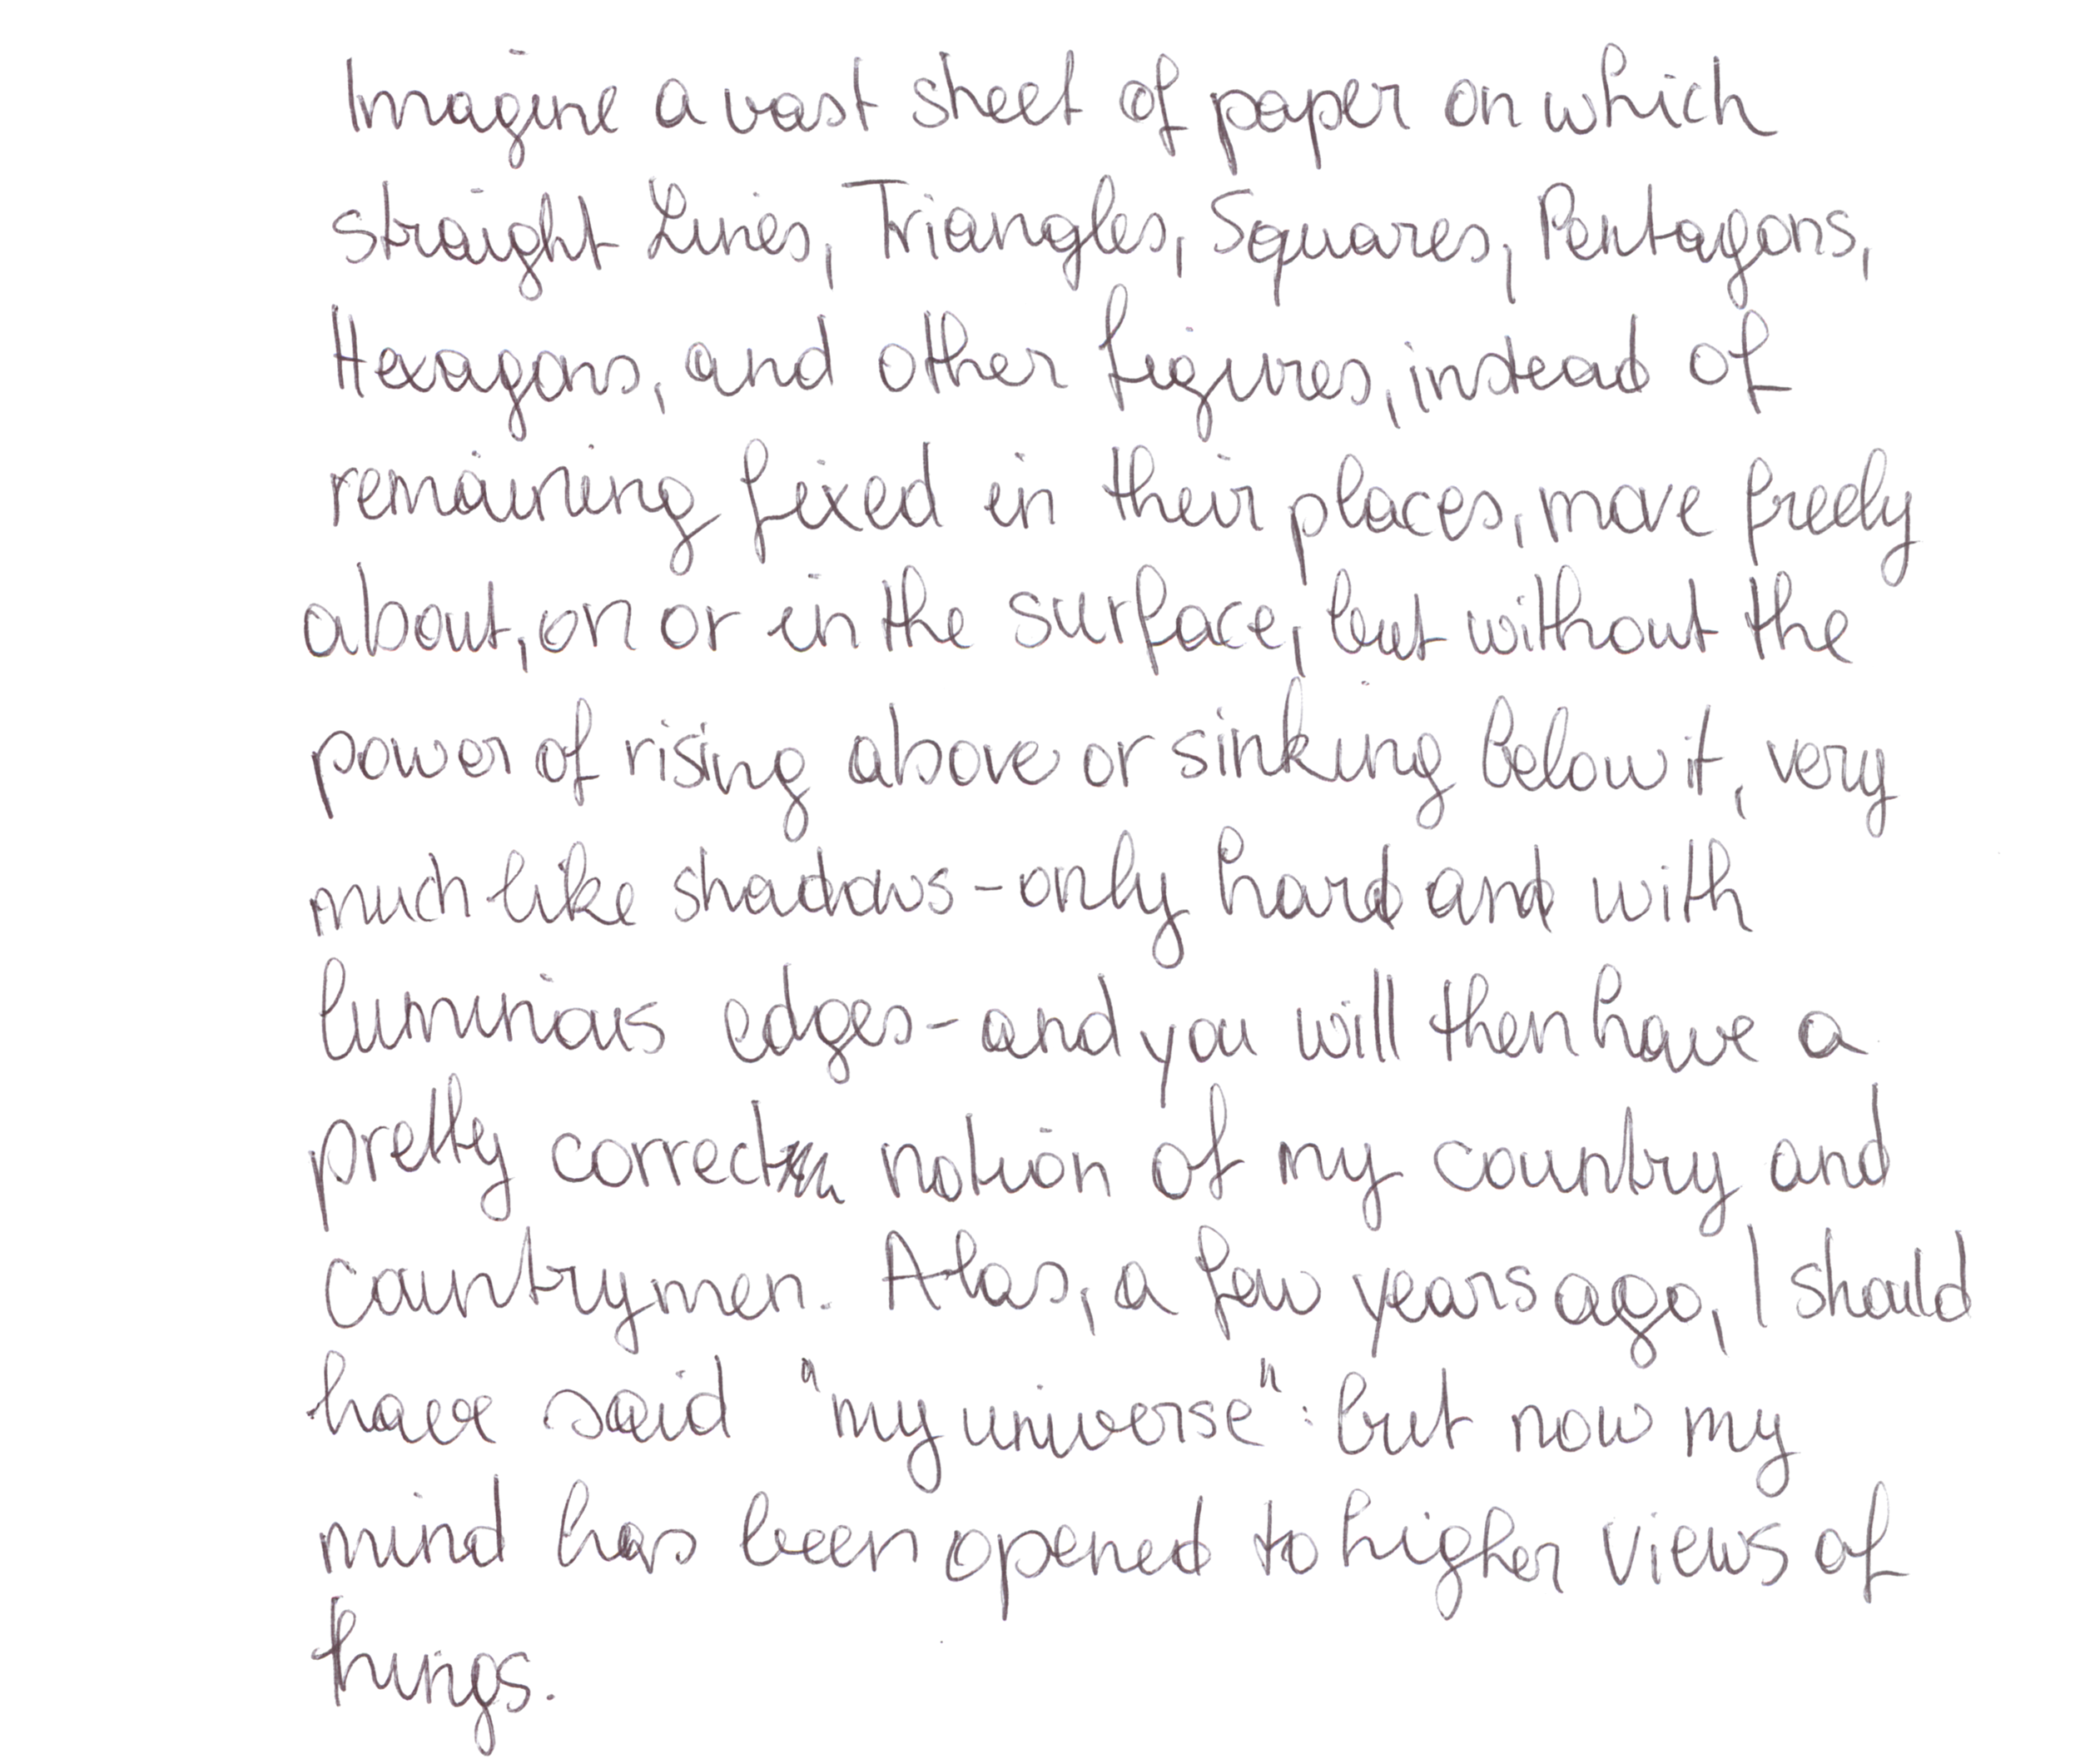 Imagine a vast sheet of paper on which
straight Lines, Triangles, Squares, Pentagons,
Hexagons, and other figures, instead of
remaining fixed in their places, move freely
about, on or in the surface, but without the
power of rising above or sinking below it, very
much like shadows - only hard and with
luminous edges - and you will then have a
pretty correct notion of my country and
countrymen. Alas, a few years ago, I should
have said "my universe": but now my
mind has been opened to higher views of
things.